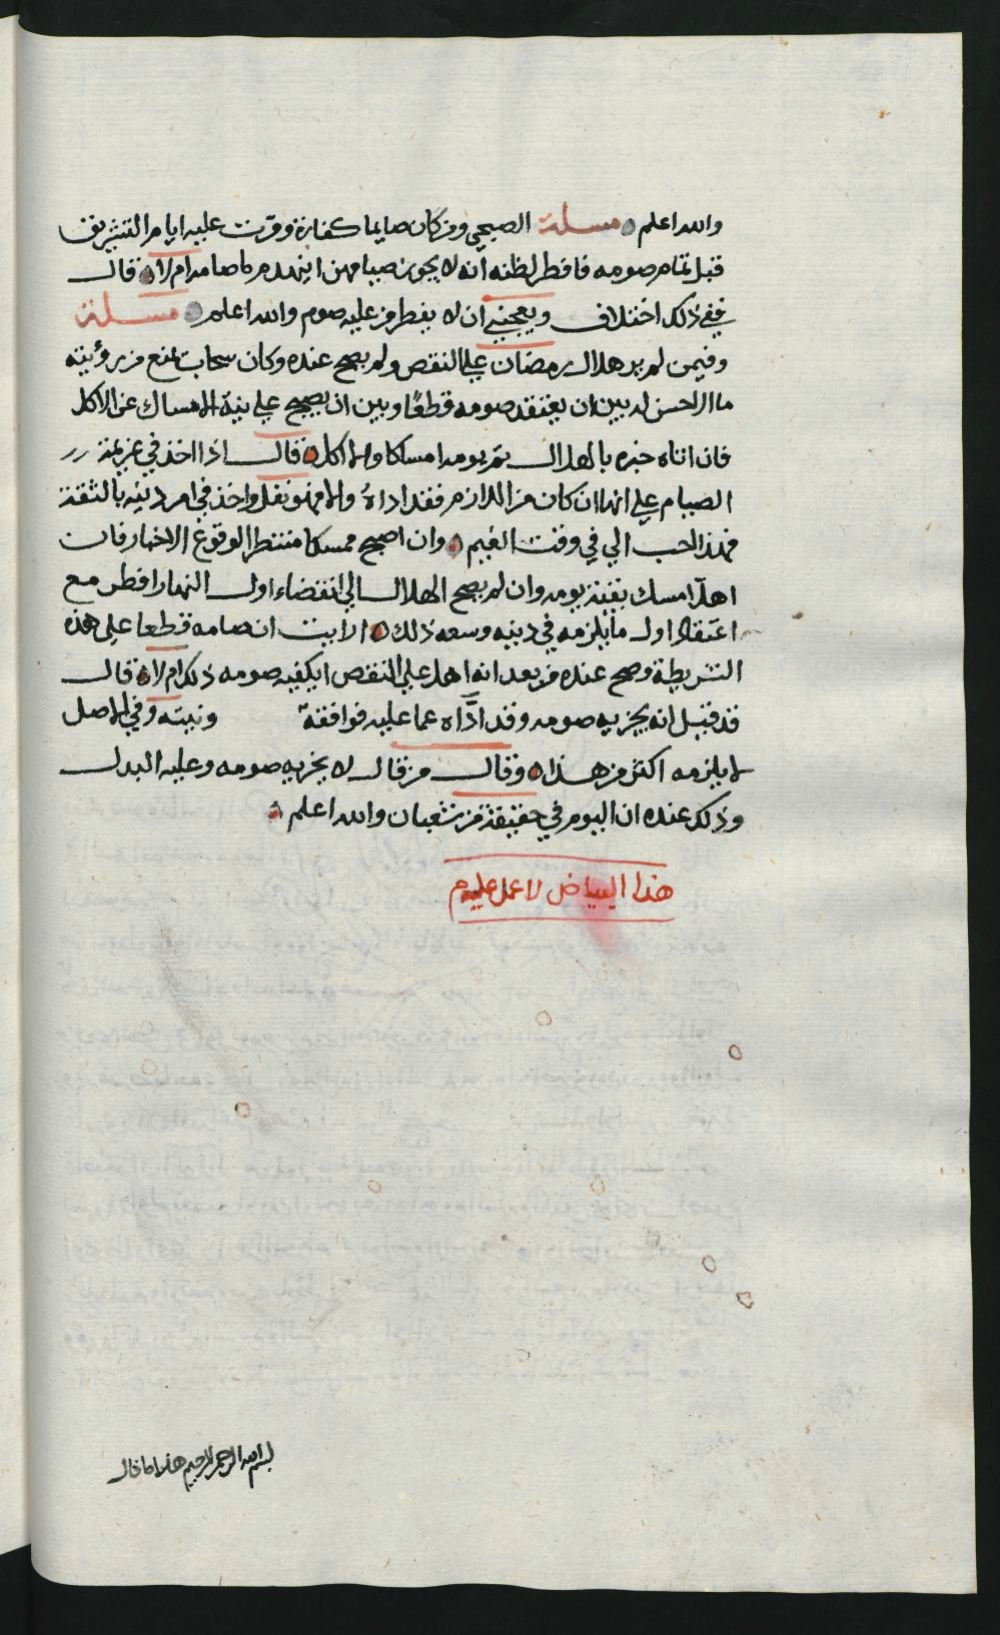 والله اعلم ه مسلة الصبحي ومن كان صايما كفارة وقربت عليه ايام التشريق
قبل تمام صومه فافطر لظنه انه لا يجوز صيامهن اينهدم ما صامه ام لا ه قال
ففي ذلك اختلاف ويعجبني ان لا يفطر من عليه صوم والله اعلم ه مسلة
وفيمن لم ير هلال رمضان على النقص ولم يصح عنده وكان سحاب تمنع من رؤيته
ما الاحسن له بين ان يعتقد صومه قطعا وبين ان يصبح على نية الامساك عن الاكل
فان اتاه خبره بالهلال تم يومه امساكا والا اكل ه قال اذا اخذ في عزيمة
الصيام على انها ان كان من اللازم فقد اداه والا فهو نفل واخذ في امر دينه بالثقة
فهذا احب الي في وقت الغيم ه وان اصبح ممسكا منتظرا لوقوع الاخبار فان
اهل امسك بقية يومه وان لم يصح الهلال الى انقضاء اول النهار افطر مع
اعتقاد اول ما يلزمه في دينه وسعه ذلك ه ارايت ان صامه قطعا على هذه
الشريطة وصح عنده من بعد انه اهل على النقص ايكفيه صومه ذلك ام لا ه قال
قد قيل انه يجزيه صومه وقد اداه عما عليه فوافقه ونيته وفي الاصل
لا يلزمه اكثر من هذا ه وقال من قال لا يجزيه صومه وعليه البدل
وذلك عنده ان اليوم في حقيقة من شعبان والله اعلم ه
هذا البياض لا عمل عليه م
بسم الله الرحمن الرحيم هذا ما قال